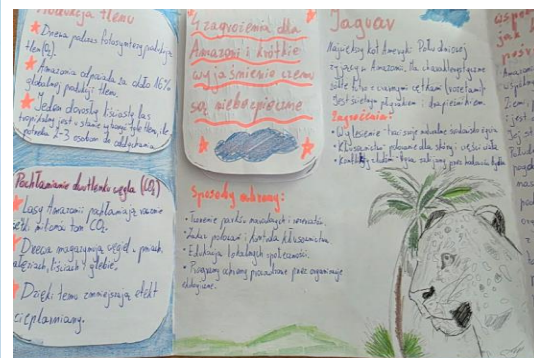 Produkcja tlenu
Drzewa podczas fotosyntezy produkują
tlen (O₂).
Amazonia odpowiada za około 16%
globalnej produkcji tlenu.
Jeden dorosły liściasty las
tropikalny jest w stanie tyle tlenu, ile
potrzeba 2-3 osobom do oddychania
Pochłanianie dwutlenku węgla (CO₂)
Lasy Amazonii pochłaniają rocznie
miliona ton CO₂.
Drzewa magazynują węgiel w pniach,
gałęziach, liściach i glebie.
Dzięki temu zmniejszają efekt
cieplarniany.
4 zagrożenia dla
Amazonii i krótkie
wyjaśnienie czemu
są niebezpieczne
Sposoby ochrony:
• Tworzenie parków narodowych i rezerwatów.
• Zakaz polowań i kontrola kłusownictwa
• Edukacja lokalnych społeczności.
• Programy ochrony prowadzone przez organizacje
ekologiczne.
Jaguar
Największy kot Ameryki Południowej
żyjący w Amazonii, ma charakterystyczne
żółte futro z czarnymi cętkami (rozetami).
Jest świetnym pływakiem i drapieżnikiem.
Zagrożenia:
• Wylesienie - traci swoje naturalne środowisko życia
• Kłusownictwo - polowanie dla skóry i części ciała
• Konflikty z ludźmi - bywa zabijany przez hodowców bydła
jak
Amazonii
Ziemi
i jest